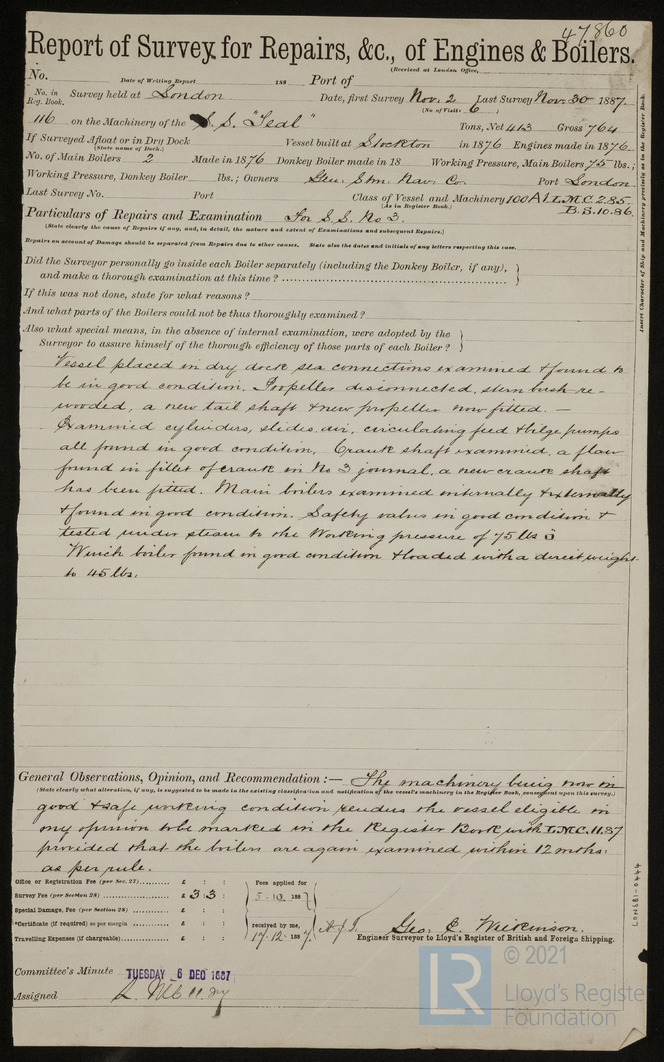 47860
Report of Survey for Repairs, &c., of Engines & Boilers.
(Received at London Office,
No. Date of Writing Report 188 Port of
No. in Reg. Book. Survey held at London Date, first Survey Nov. 2 Last Survey Nov. 30 1887.
(No. of Visits 6 )
116 on the Machinery of the S.S. "Teal" Tons, Net 413 Gross 764
If Surveyed Afloat or in Dry Dock Vessel built at Stockton in 1876 Engines made in 1876
(State name of Dock.)
No. of Main Boilers 2 Made in 1876 Donkey Boiler made in 18 Working Pressure, Main Boilers 75 lbs.;
Working Pressure, Donkey Boiler lbs.; Owners Gen. Stm. Nav. Co. Port London
Last Survey No. Port Class of Vessel and Machinery 100A1 L.M.C. 2.85.
(As in Register Book.) B.S. 10.86.
Particulars of Repairs and Examination For S.S. No 3.
(State clearly the cause of Repairs if any, and, in detail, the nature and extent of Examinations and subsequent Repairs.)
Repairs on account of Damage should be separated from Repairs due to other causes. State also the dates and initials of any letters respecting this case.
Did the Surveyor personally go inside each Boiler separately (including the Donkey Boiler, if any),
and make a thorough examination at this time ?
If this was not done, state for what reasons ?
And what parts of the Boilers could not be thus thoroughly examined ?
Also what special means, in the absence of internal examination, were adopted by the
Surveyor to assure himself of the thorough efficiency of those parts of each Boiler ?
Vessel placed in dry dock sea connections examined & found to
be in good condition. Propeller disconnected, stern bush re-
wooded, a new tail shaft & new propeller now fitted. —
Examined cylinders, slides, air, circulating feed & bilge pumps
all found in good condition. Crank shaft examined, a flaw
found in fillet of crank in No 3 journal, a new crank shaft
has been fitted. Main boilers examined internally & externally
& found in good condition. Safety valves in good condition &
tested under steam to the Working pressure of 75 lbs
Winch boiler found in good condition & loaded with a direct weight
to 45 lbs.
General Observations, Opinion, and Recommendation :— The machinery being now in
(State clearly what alteration, if any, is suggested to be made in the existing classification and notification of the vessel's machinery in the Register Book, consequent upon this survey.)
good & safe working condition renders the vessel eligible in
my opinion to be marked in the Register Book with L.M.C. 11.87
provided that the boilers are again examined within 12 mths:
as per rule.
Office or Registration Fee (per Sec. 27) £ : :
Survey Fee (per Section 28) £ 3 : 3 :
Special Damage, Fee (per Section 28) £ : :
*Certificate (if required) as per margin £ : :
Travelling Expenses (if chargeable) £ : :
Fees applied for
188
received by me,
17.12.1887.
Geo. C. Wilkinson.
Engineer Surveyor to Lloyd's Register of British and Foreign Shipping.
Committee's Minute TUESDAY 6 DEC 1887
Assigned
Insert Character of Ship and Machinery precisely as in the Register Book.
LON681-0444
© 2021
LR
Lloyd's Register
Foundation